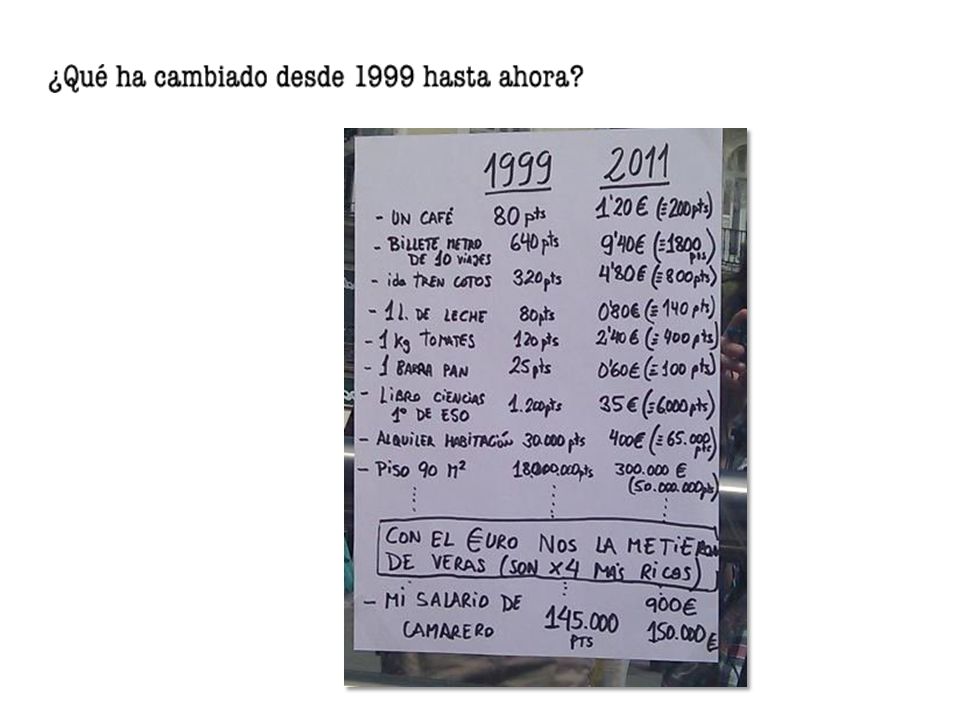 ¿Qué ha cambiado desde 1999 hasta ahora?
1999 2011
- UN CAFÉ 80 pts 1'20 € (=200pts)
- BILLETE METRO 640 pts 9'40€ (=1800 pts)
DE 10 VIAJES
- ida TREN COTOS 320 pts 4'80€ (=800pts)
- 1 l. DE LECHE 80pts 0'80€ (=140 pts)
- 1 Kg TOMATES 120 pts 2'40€ (=400 pts)
- 1 BARRA PAN 25 pts 0'60€ (=100 pts)
- LIBRO CIENCIAS 1.200pts 35€ (=6.000pts)
1º DE ESO
- ALQUILER HABITACIÓN 30.000 pts 400€ (=65.000 pts)
- PISO 90 M² 18.000.000pts 300.000 €
(50.000.000pts)
CON EL €URO NOS LA METIERON
DE VERAS (SON X4 MÁS RICOS)
- MI SALARIO DE 145.000 900€
CAMARERO PTS 150.000 €